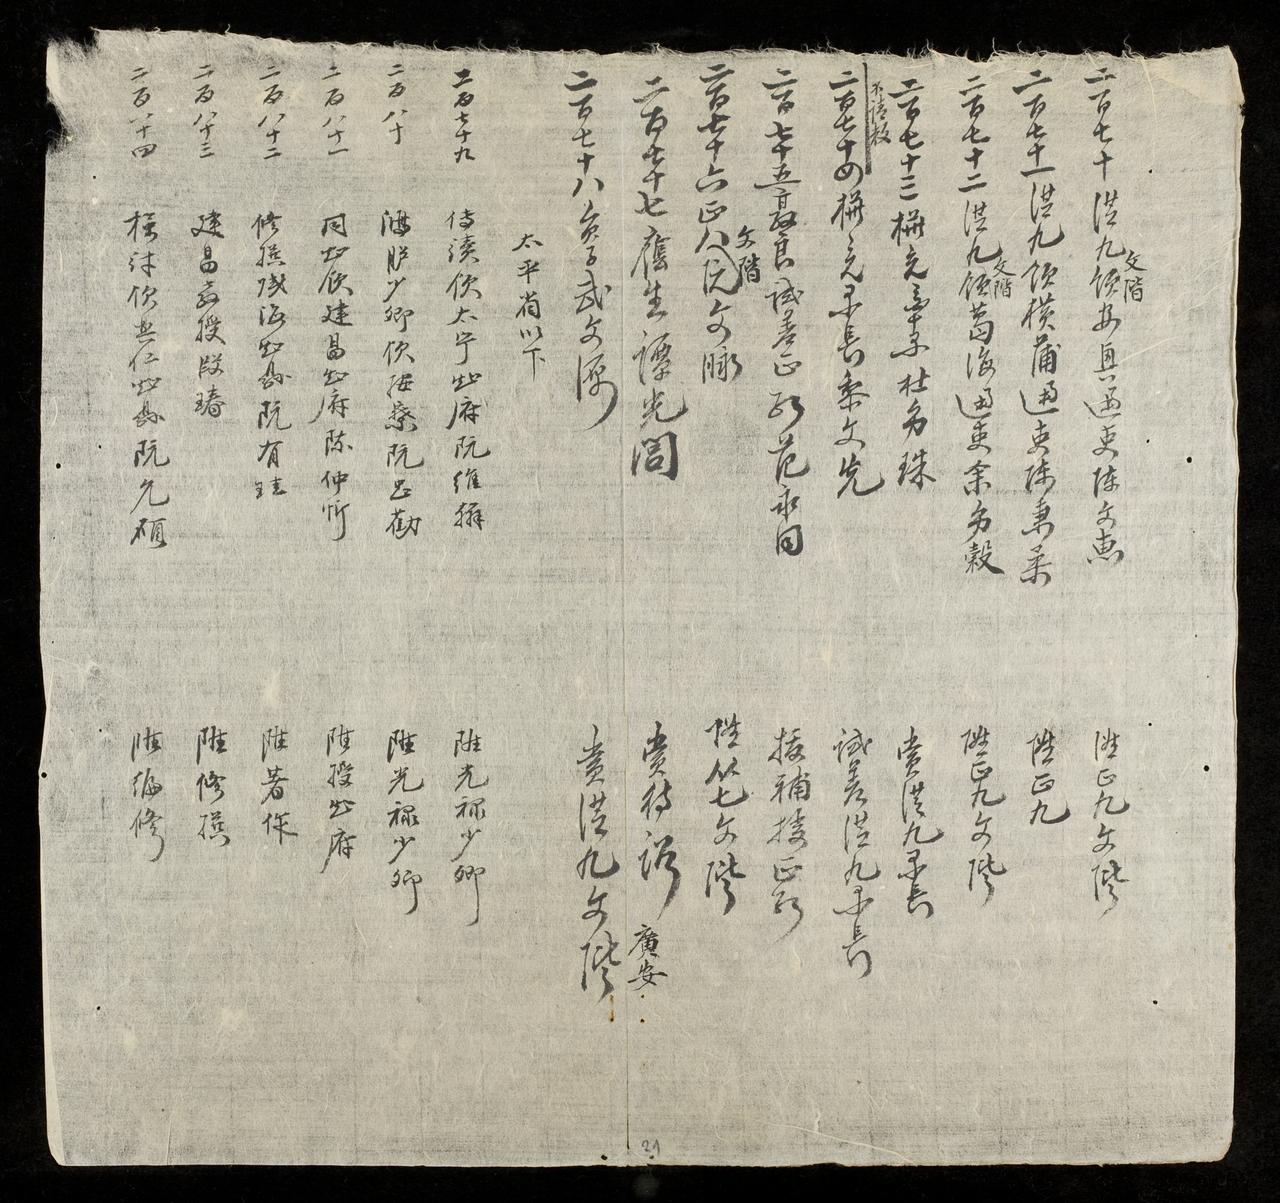 二百七十 從九領安興通吏陳文惠 陞正九文階
文階
二百七十一 從九領橫蒲通吏陳秉柔 陞正九
二百七十二 從九領葛海通吏余多穀 陞正九文階
文階
二百七十三 杜多珠 賞從九里長
二百七十四 里長黎文先 試差從九里長
二百七十五 試差正 范永同 援補授正
二百七十六 正八阮文脉 陞從七文階
文階
二百七十七 蔭生譚光誾 賞待詔
廣安
二百七十八 武文 賞從九文階
太平省以下
二百七十九 侍讀領太寧知府阮維 陞光祿少卿
二百八十 鴻臚少卿領按察阮忠勸 陞光祿少卿
二百八十一 同知領建昌知府陳仲忻 陞授知府
二百八十二 修撰領海知縣阮有 陞著作
二百八十三 建昌教授段瑃 陞修撰
二百八十四 檢討領興仁知縣阮允碩 陞編修
21